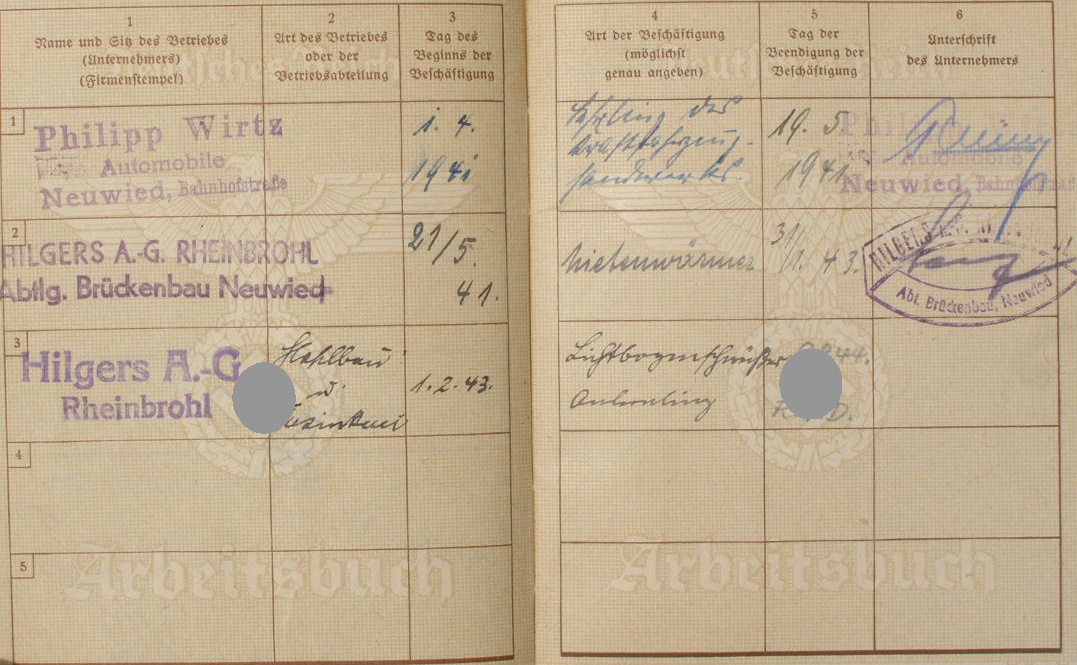 1
Name und Sitz des Betriebes
(Unternehmers)
(Firmenstempel)
2
Art des Betriebes
oder der
Betriebsabteilung
3
Tag des
Beginns der
Beschäftigung
4
Art der Beschäftigung
(möglichst
genau angeben)
5
Tag der
Beendigung der
Beschäftigung
6
Unterschrift
des Unternehmers
1
Philipp Wirtz
Automobile
Neuwied, Bahnhofstraße
1. 4.
1941
Lehrling des
Kraftfahrzeug-
handwerks.
19. 5.
1941
Neuwied, Bahnhofstraße
2
HILGERS A.-G. RHEINBROHL
Abtlg. Brückenbau Neuwied
21/5.
41.
Nietenwärmer
31/
1. 43.
HILGERS A.G.
Abt. Brückenbau, Neuwied
3
Hilgers A.-G.
Rheinbrohl
Stahlbau
u.
1. 2. 43.
Lichtbogenschweißer
44.
4
5
Arbeitsbuch
Arbeitsbuch